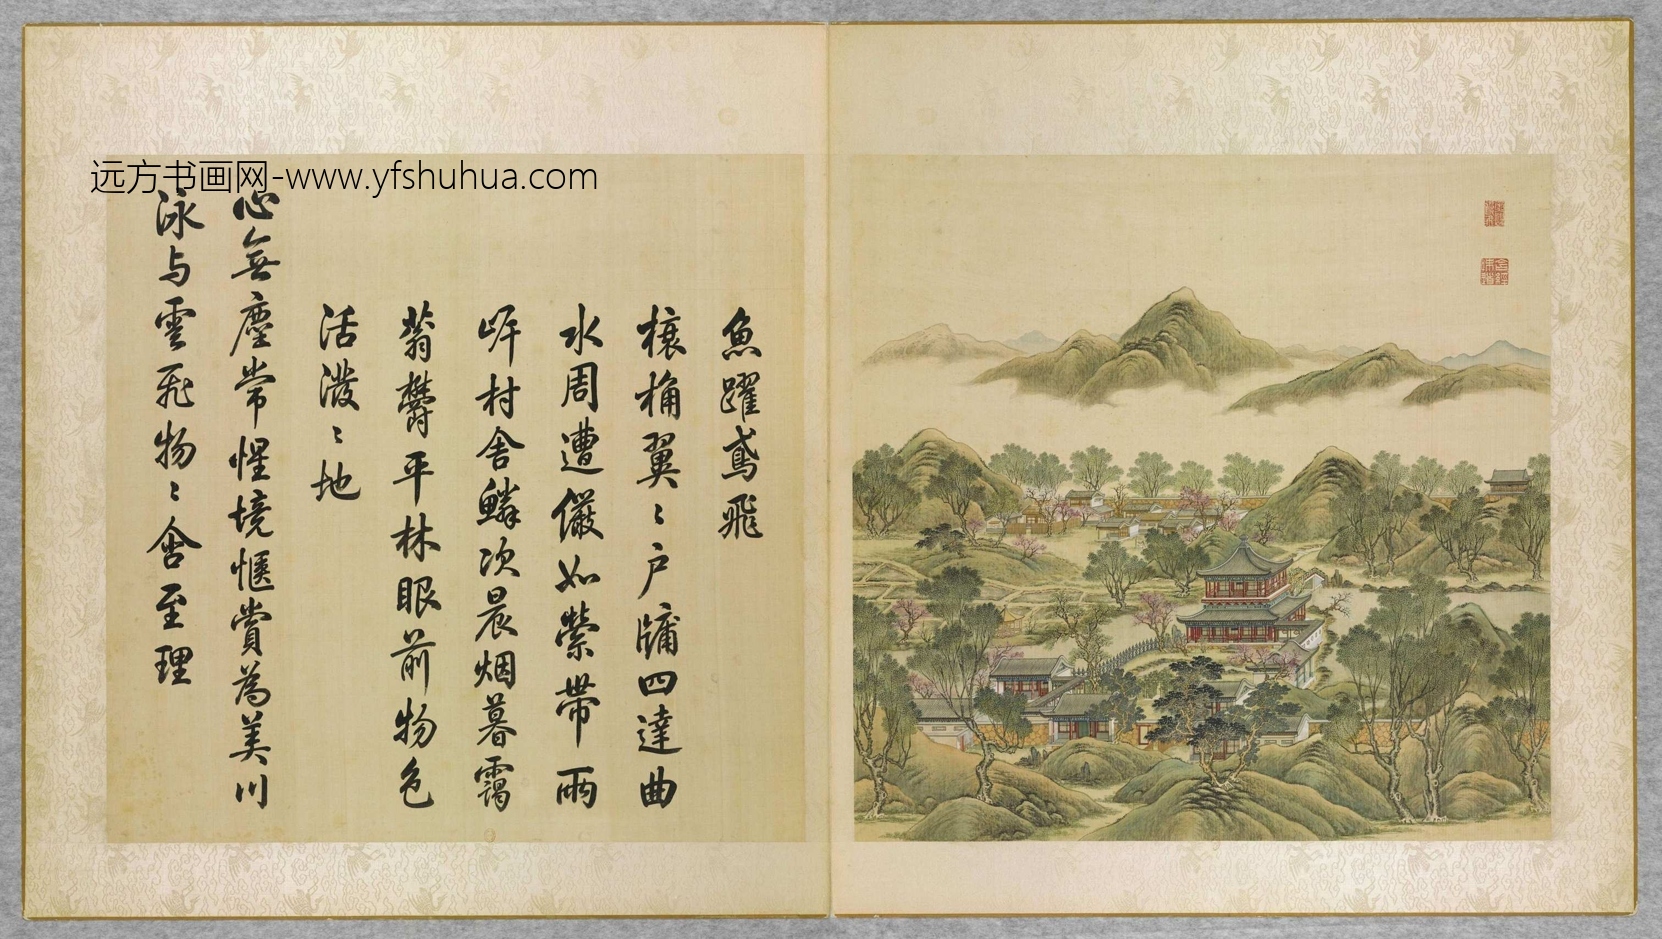 远方书画网-www.yfshuhua.com
魚躍鳶飛
榱桷翼〻户牖四達曲
水周遭儼如縈帶兩
岸村舍鱗次晨烟暮靄
蓊鬱平林眼前物色
活潑〻地
心無塵常惺境愜賞為美川
泳与雲飛物〻含至理